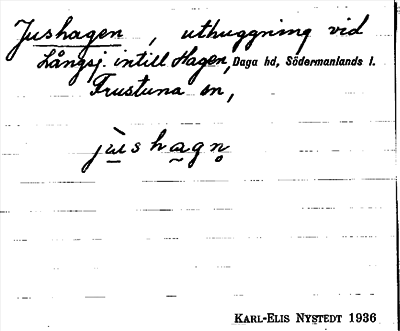 Jushagen, uthuggning vid
Långsj. intill Hagen, Daga hd, Södermanlands l.
Frustuna sn,
jùs hagn̥
KARL-ELIS NYSTEDT 1936